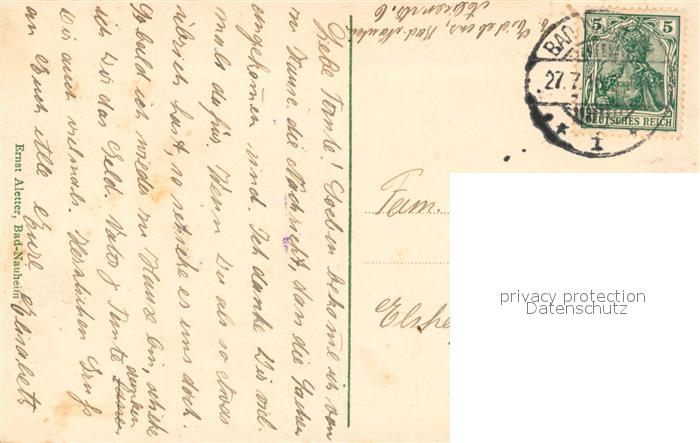 Liebe Tante! Soeben bekomme ich von
zu Hause die Nachricht, dan die Sachen
angekommen sind. Ich danke Dir viel-
mals dafür. Wenn Du als so etwas
übrich hast, so schicke es uns doch.
So bald ich wieder zu Hause bin, schicke
ich Dir das Geld. Vater & Tante danken
Dir auch vielmals. Herzlichen Gruß
an Euch Alle Eure Elisabeth
Ernst Aletter, Bad-Nauheim
Bad Nauheim
BAD
27.7.1
1
5 5
DEUTSCHES REICH
Fam.
Elspe
privacy protection
Datenschutz